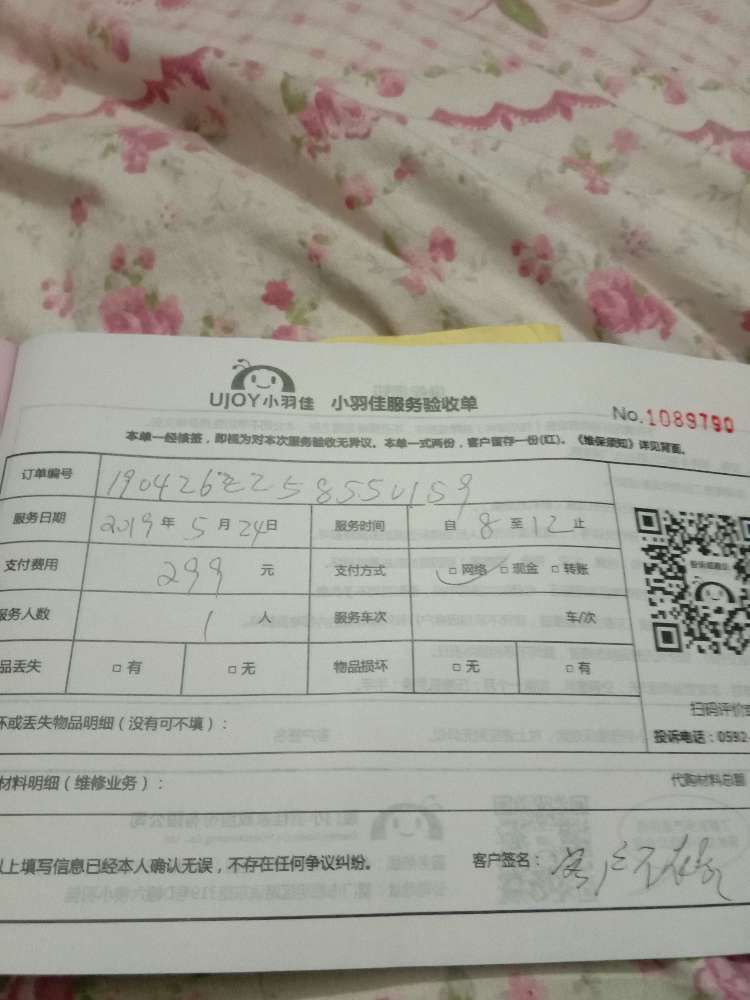 UJOY小羽佳 小羽佳服务验收单
No.1089790
本单一经核签，即视为对本次服务验收无异议。本单一式两份，客户留存一份(红)。《维保须知》详见背面。
订单编号
服务日期 2019年5月24日 服务时间 自8至12止
支付费用 299元 支付方式 □网络 □现金 □转账
服务人数 1人 服务车次 车/次
品丢失 □有 □无 物品损坏 □无 □有
扫码评价
坏或丢失物品明细（没有可不填）：
投诉电话：0592-
材料明细（维修业务）：
代购材料总额
以上填写信息已经本人确认无误，不存在任何争议纠纷。
客户签名：客户不在家